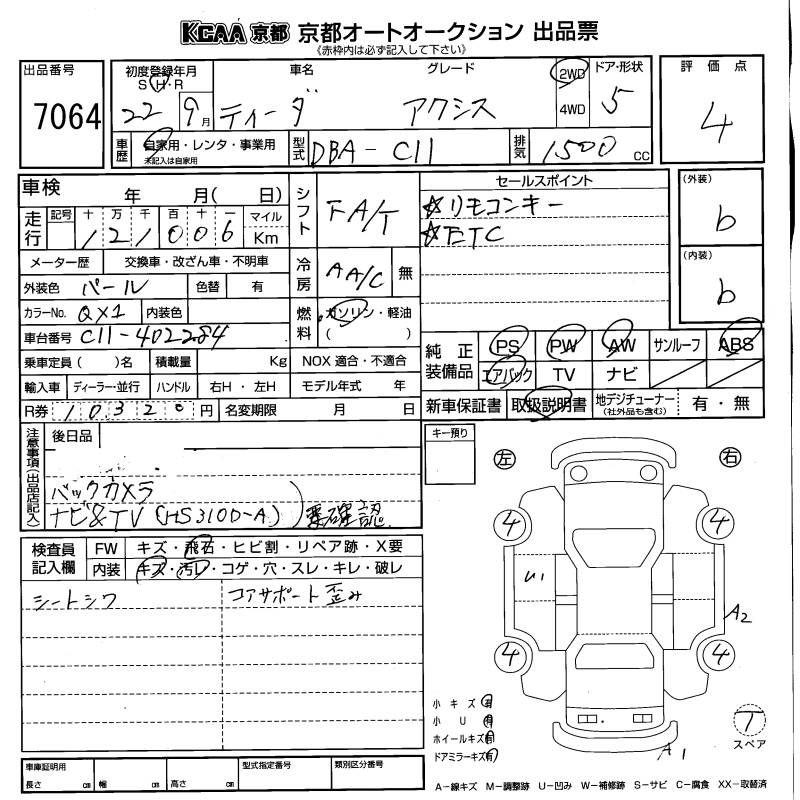 KCAA 京都 京都オートオークション 出品票
《赤枠内は必ず記入して下さい》
出品番号 初度登録年月 車名 グレード 2WD ドア・形状 評価点
S・H・R
7064 22 9月 ティーダ アクシス 4WD 5 4
車歴 自家用・レンタ・事業用 型式 DBA-C11 排気 1500 cc
未記入は自家用
車検 年 月( 日) シフト FA/T セールスポイント (外装)
走行 記号 十 万 千 百 十 一 マイル ☆リモコンキー b
121006 Km ☆ETC
メーター歴 交換車・改ざん車・不明車 冷房 AA/C 無 (内装)
外装色 パール 色替 有 b
カラーNo. QX1 内装色 燃料 ガソリン・軽油
車台番号 C11-402284 ( )
乗車定員( )名 積載量 Kg NOX 適合・不適合 純正装備品 PS PW AW サンルーフ ABS
輸入車 ディーラー・並行 ハンドル 右H・左H モデル年式 年 エアバック TV ナビ
R券 10320円 名変期限 月 日 新車保証書 取扱説明書 地デジチューナー 有・無
(社外品も含む)
注意事項(出品店記入) 後日品 キー預り 左 右
バックカメラ
ナビ&TV (HS310D-A) 要確認
4 4
検査員記入欄 FW キズ・飛石・ヒビ割・リペア跡・X要
内装 キズ・汚レ・コゲ・穴・スレ・キレ・破レ
U1
シートシワ コアサポート歪み
A2
4 4
小キズ 有
小U 有
ホイールキズ 有
ドアミラーキズ 有
T
スペア
A1
車庫証明用 型式指定番号 類別区分番号
長さ cm 幅 cm 高さ cm
A-線キズ M-調整跡 U-凹み W-補修跡 S-サビ C-腐食 XX-取替済